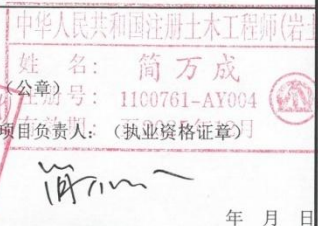 中华人民共和国注册土木工程师(岩土
姓 名: 简万成
(公章)
注册号: 1100761-AY004
项目负责人: (执业资格证章)
有效期: 至
月
年 月 日